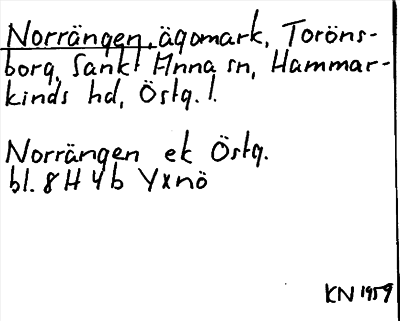 Norrängen, ägomark, Toröns-
borg, Sankt Anna sn, Hammar-
kinds hd, Östg. l.
Norrängen ek Östg.
bl. 8H 4b Yxnö
KN 1959